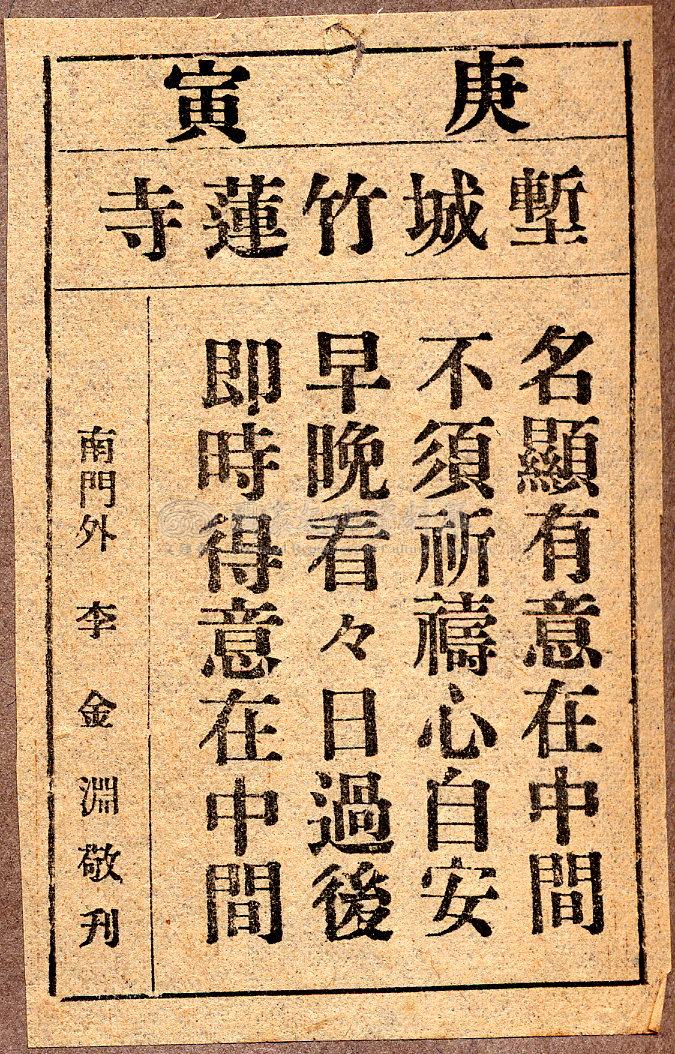 庚寅
塹城竹蓮寺
名顯有意在中間
不須祈禱心自安
早晚看々日過後
即時得意在中間
南門外 李金淵敬刊